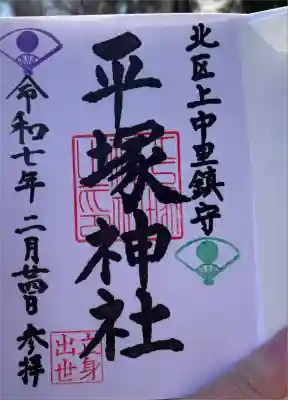 北区上中里鎮守
平塚神社
令和七年 二月廿四日 参拝
立身
出世